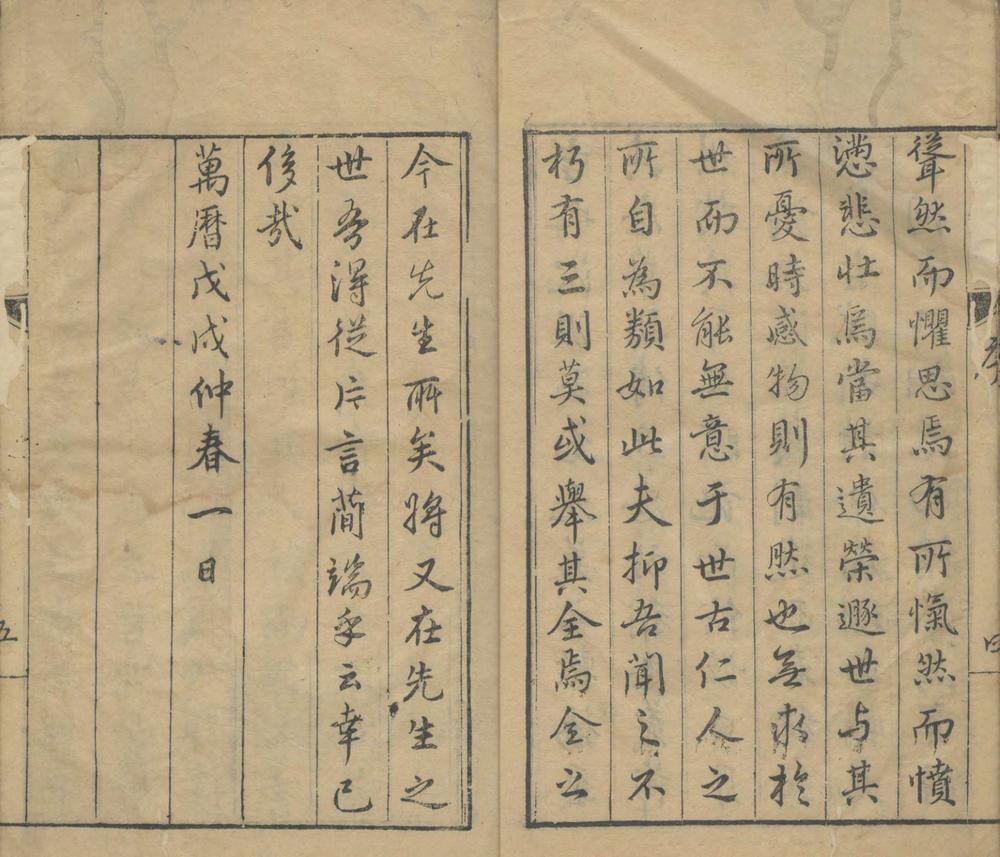 序
四
聳然而懼思焉有所愾然而憤
懣悲壯焉當其遺榮遯世与其
所憂時感物則有然也無求於
世而不能無意于世古仁人之
所自為類如此夫抑吾聞之不
朽有三則莫或舉其全焉全公
今在先生所矣將又在先生之
世吾得從片言蕳端乎云幸已
侈哉
萬曆戊戌仲春一日
五